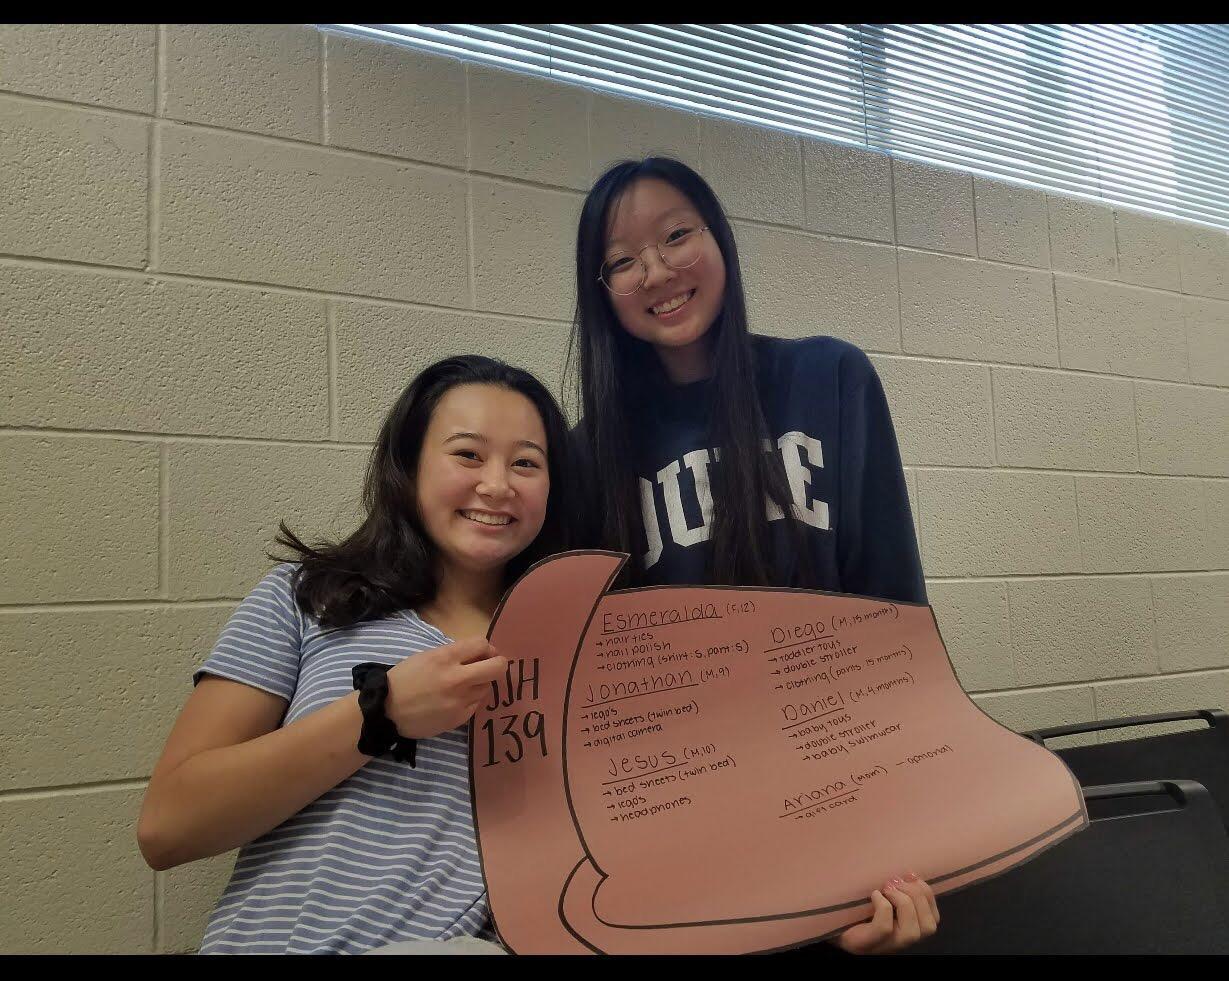 DUKE
JJH
139
Esmeralda (F, 12)
→ hair ties
→ nail polish
→ clothing (shirt: S, pant: S)
Jonathan (M, 9)
→ lego's
→ bed sheets (twin bed)
→ digital camera
Jesus (M, 10)
→ bed sheets (twin bed)
→ lego's
→ headphones
Diego (M, 15 months)
→ toddler toys
→ double stroller
→ clothing (pants 15 months)
Daniel (M, 4 months)
→ baby toys
→ double stroller
→ baby swimwear
Ariana (mom) - optional
→ gift card